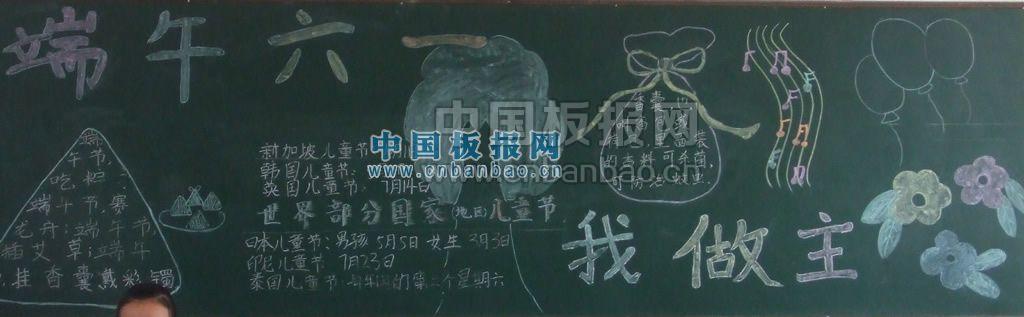 端午六一
端
午节,
吃粽,
端午节,赛
龙舟;端午节
插艾草;端午
挂香囊戴彩镯
新加坡儿童节
韩国儿童节:
7月14日
世界部分国家(地区)儿童节
日本儿童节:男孩5月5日 女生3月3日
印尼儿童节:7月23日
泰国儿童节:每年
星期六
香囊
装
的香料可杀菌,
可防
我做主
中国板报网
中国板报网
www.cnbanbao.cn